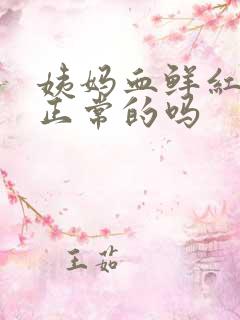 姨妈血鲜红
正常的吗
王茹